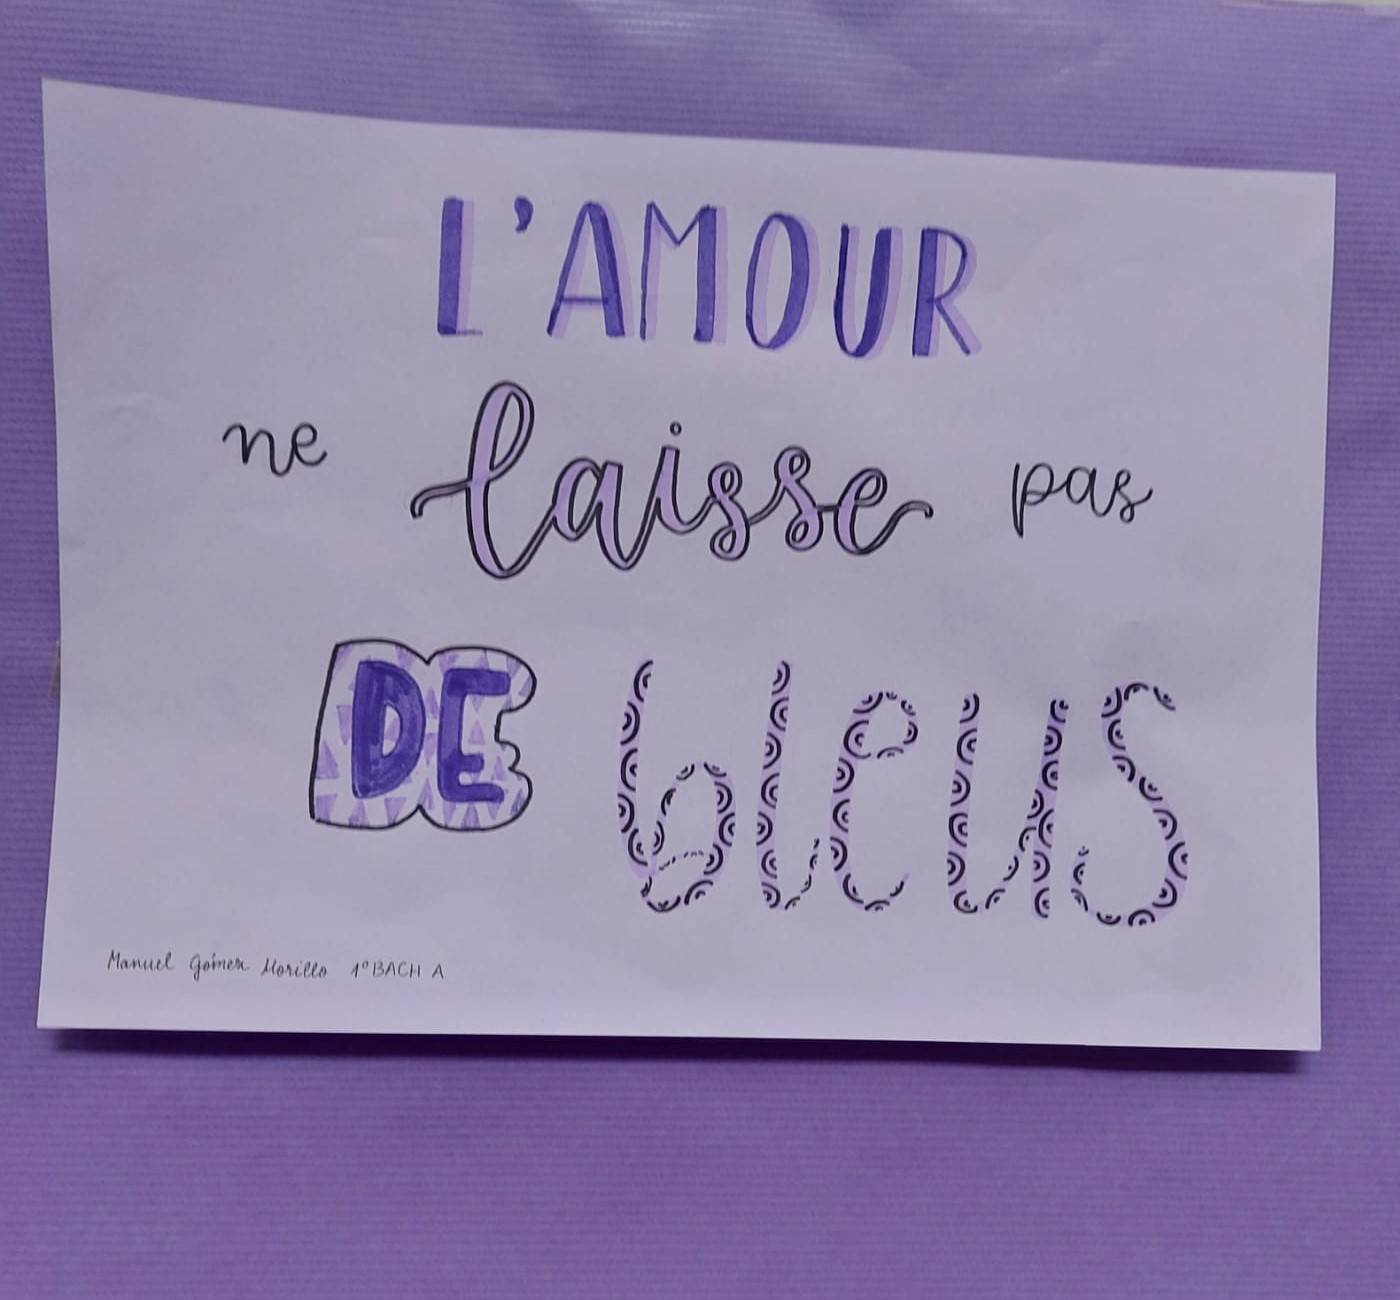 L'AMOUR
ne laisse pas
DE bleus
Manuel Gómez Morillo 1º BACH A